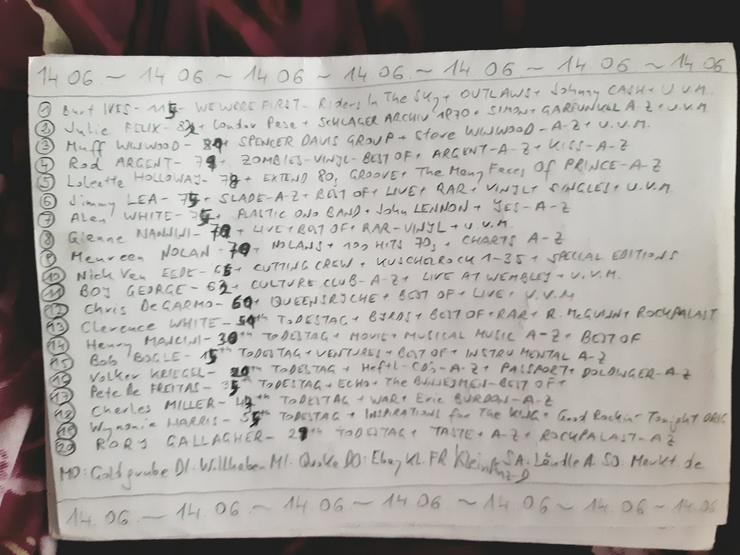 14 06. ~ 14 06 ~ 14 06 ~ 14 06 ~ 14 06 ~ 14 06 ~ 14 06
1 Burt IVES - 115 - WE WERE FIRST - Riders In The Sky + OUTLAWS + Johnny CASH + U.V.M.
2 Julie FELIX - + Condor Pasa + SCHLAGER ARCHIV 1970 + SIMON + GARFUNKEL A-Z + U.V.M.
3 Muff WINWOOD - + SPENCER DAVIS GROUP + Steve WINWOOD - A-Z + U.V.M.
4 Rod ARGENT - 79 + ZOMBIES - VINYL - BEST OF + ARGENT - A-Z + KISS - A-Z
5 Loleatta HOLLOWAY - 78 + EXTEND 80s GROOVE + The Many Faces OF PRINCE - A-Z
6 Jimmy LEA - 75 + SLADE - A-Z + BEST OF + LIVE + RAR + VINYL + SINGLES + U.V.M.
7 Alan WHITE - 75 + PLASTIC ONO BAND + John LENNON + YES - A-Z
8 Gianna NANNINI - 70 + LIVE + BEST OF + RAR - VINYL + U.V.M.
9 Maureen NOLAN - 70 + NOLANS + 100 HITS 70s + CHARTS A-Z
10 Nick Van EEDE - 66 + CUTTING CREW + KUSCHELROCK 1-35 + SPECIAL EDITIONS
11 BOY GEORGE - 63 + CULTURE CLUB - A-Z + LIVE AT WEMBLEY + U.V.M.
12 Chris DeGARMO - 60 + QUEENSRYCHE + BEST OF + LIVE + U.V.M
13 Clarence WHITE - 50th TODESTAG + BYRDS + BEST OF + RAR + R. McGUINN + ROCKPALAST
14 Henry MANCINI - 30th TODESTAG + MOVIE + MUSICAL MUSIC A-Z + BEST OF
15 Bob BOGLE - 15th TODESTAG + VENTURES + BEST OF + INSTRUMENTAL A-Z
16 Volker KRIEGEL - 20th TODESTAG + Heftl-CD's - A-Z + PASSPORT + DOLDINGER - A-Z
17 Pete De FREITAS - 35th TODESTAG + ECHO + The BUNNYMEN - BEST OF +
18 Charles MILLER - TODESTAG + WAR + Eric BURDON - A-Z
19 Wynonie HARRIS - 55th TODESTAG + INSPIRATIONS for The KING + Good Rockin' Tonight ORIG
20 RORY GALLAGHER - 29th TODESTAG + TASTE + A-Z + ROCKPALAST - A-Z
MO: Goldgrube DI. Willhaben MI. Quoka DO: Ebay KL. FR Kleinanz-D SA. Ländle A. SO. Markt de
14. 06 ~ 14 06 ~ 14 06 ~ 14 06 ~ 14 06 ~ 14 06 ~ 14 06